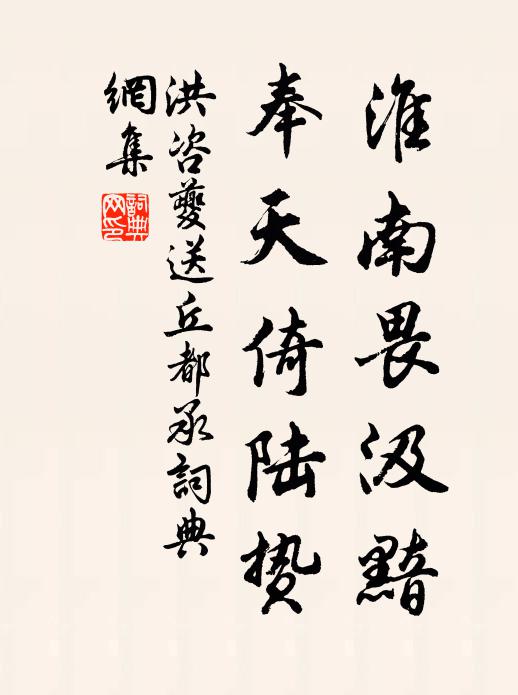 淮南畏汲黯
奉天倚陆贽
洪咨夔送丘都承詞典
網集
詞典
网印